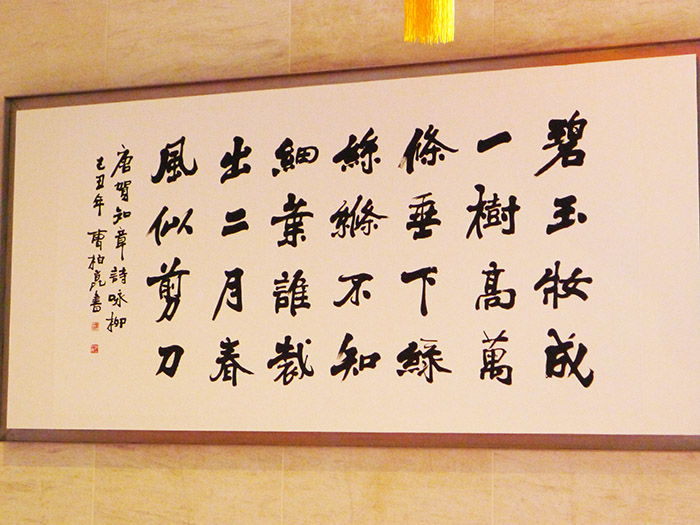 碧玉妝成
一樹高萬
條垂下綠
絲縧不知
細葉誰裁
出二月春
風似剪刀
唐賀知章詩咏柳
己丑年 曹柏書